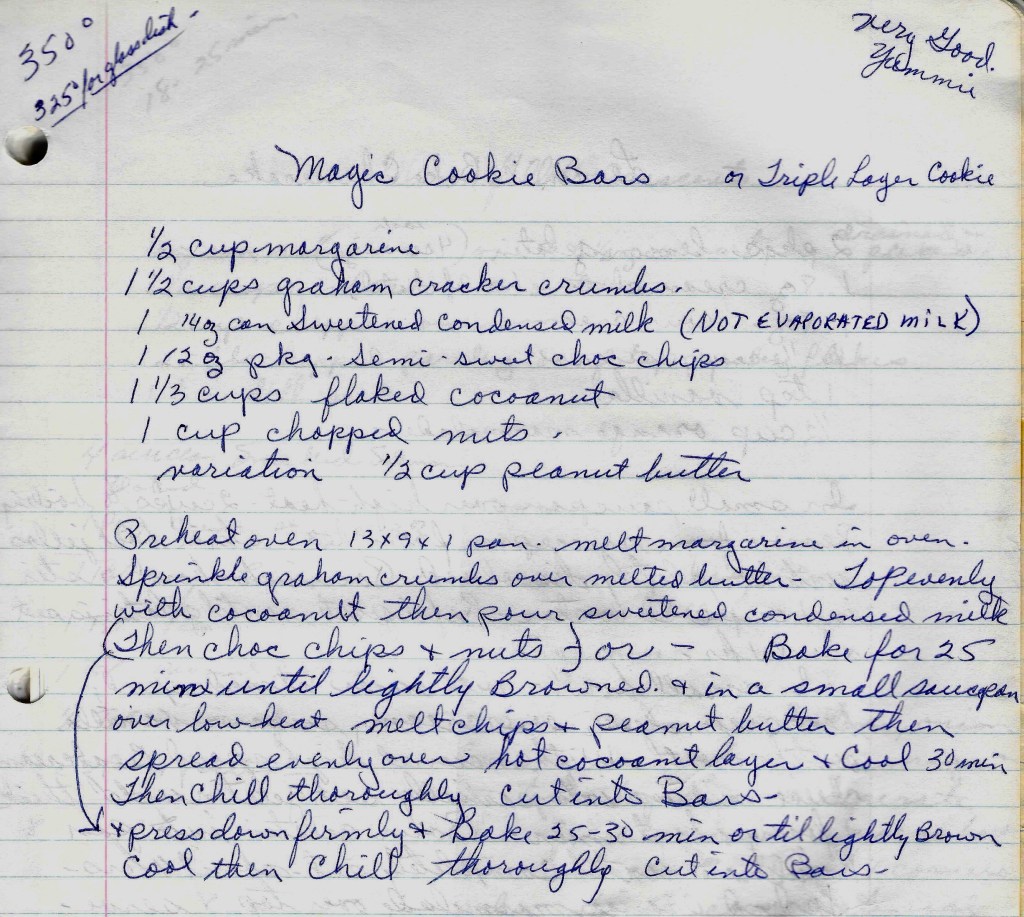 350°
325° for glass dish -
25 min
18
Very Good.
Yummie
Magic Cookie Bars or Triple Layer Cookie
1/2 cup margarine
1 1/2 cups graham cracker crumbs.
1 14oz can Sweetened Condensed milk (NOT EVAPORATED MILK)
1 12 oz pkg. semi-sweet choc chips
1 1/3 cups flaked cocoanut
1 cup chopped nuts.
variation 1/2 cup peanut butter
Preheat oven 13x9x1 pan. melt margarine in oven.
Sprinkle graham crumbs over melted butter - Top evenly
with cocoanut then pour sweetened condensed milk
(Then choc chips + nuts } or - Bake for 25
min until lightly Browned. + in a small saucepan
over low heat melt chips + peanut butter then
spread evenly over hot cocoanut layer + Cool 30 min
Then Chill thoroughly cut into Bars-
+ press down firmly + Bake 25-30 min or til lightly Brown
Cool then Chill thoroughly Cut into Bars-